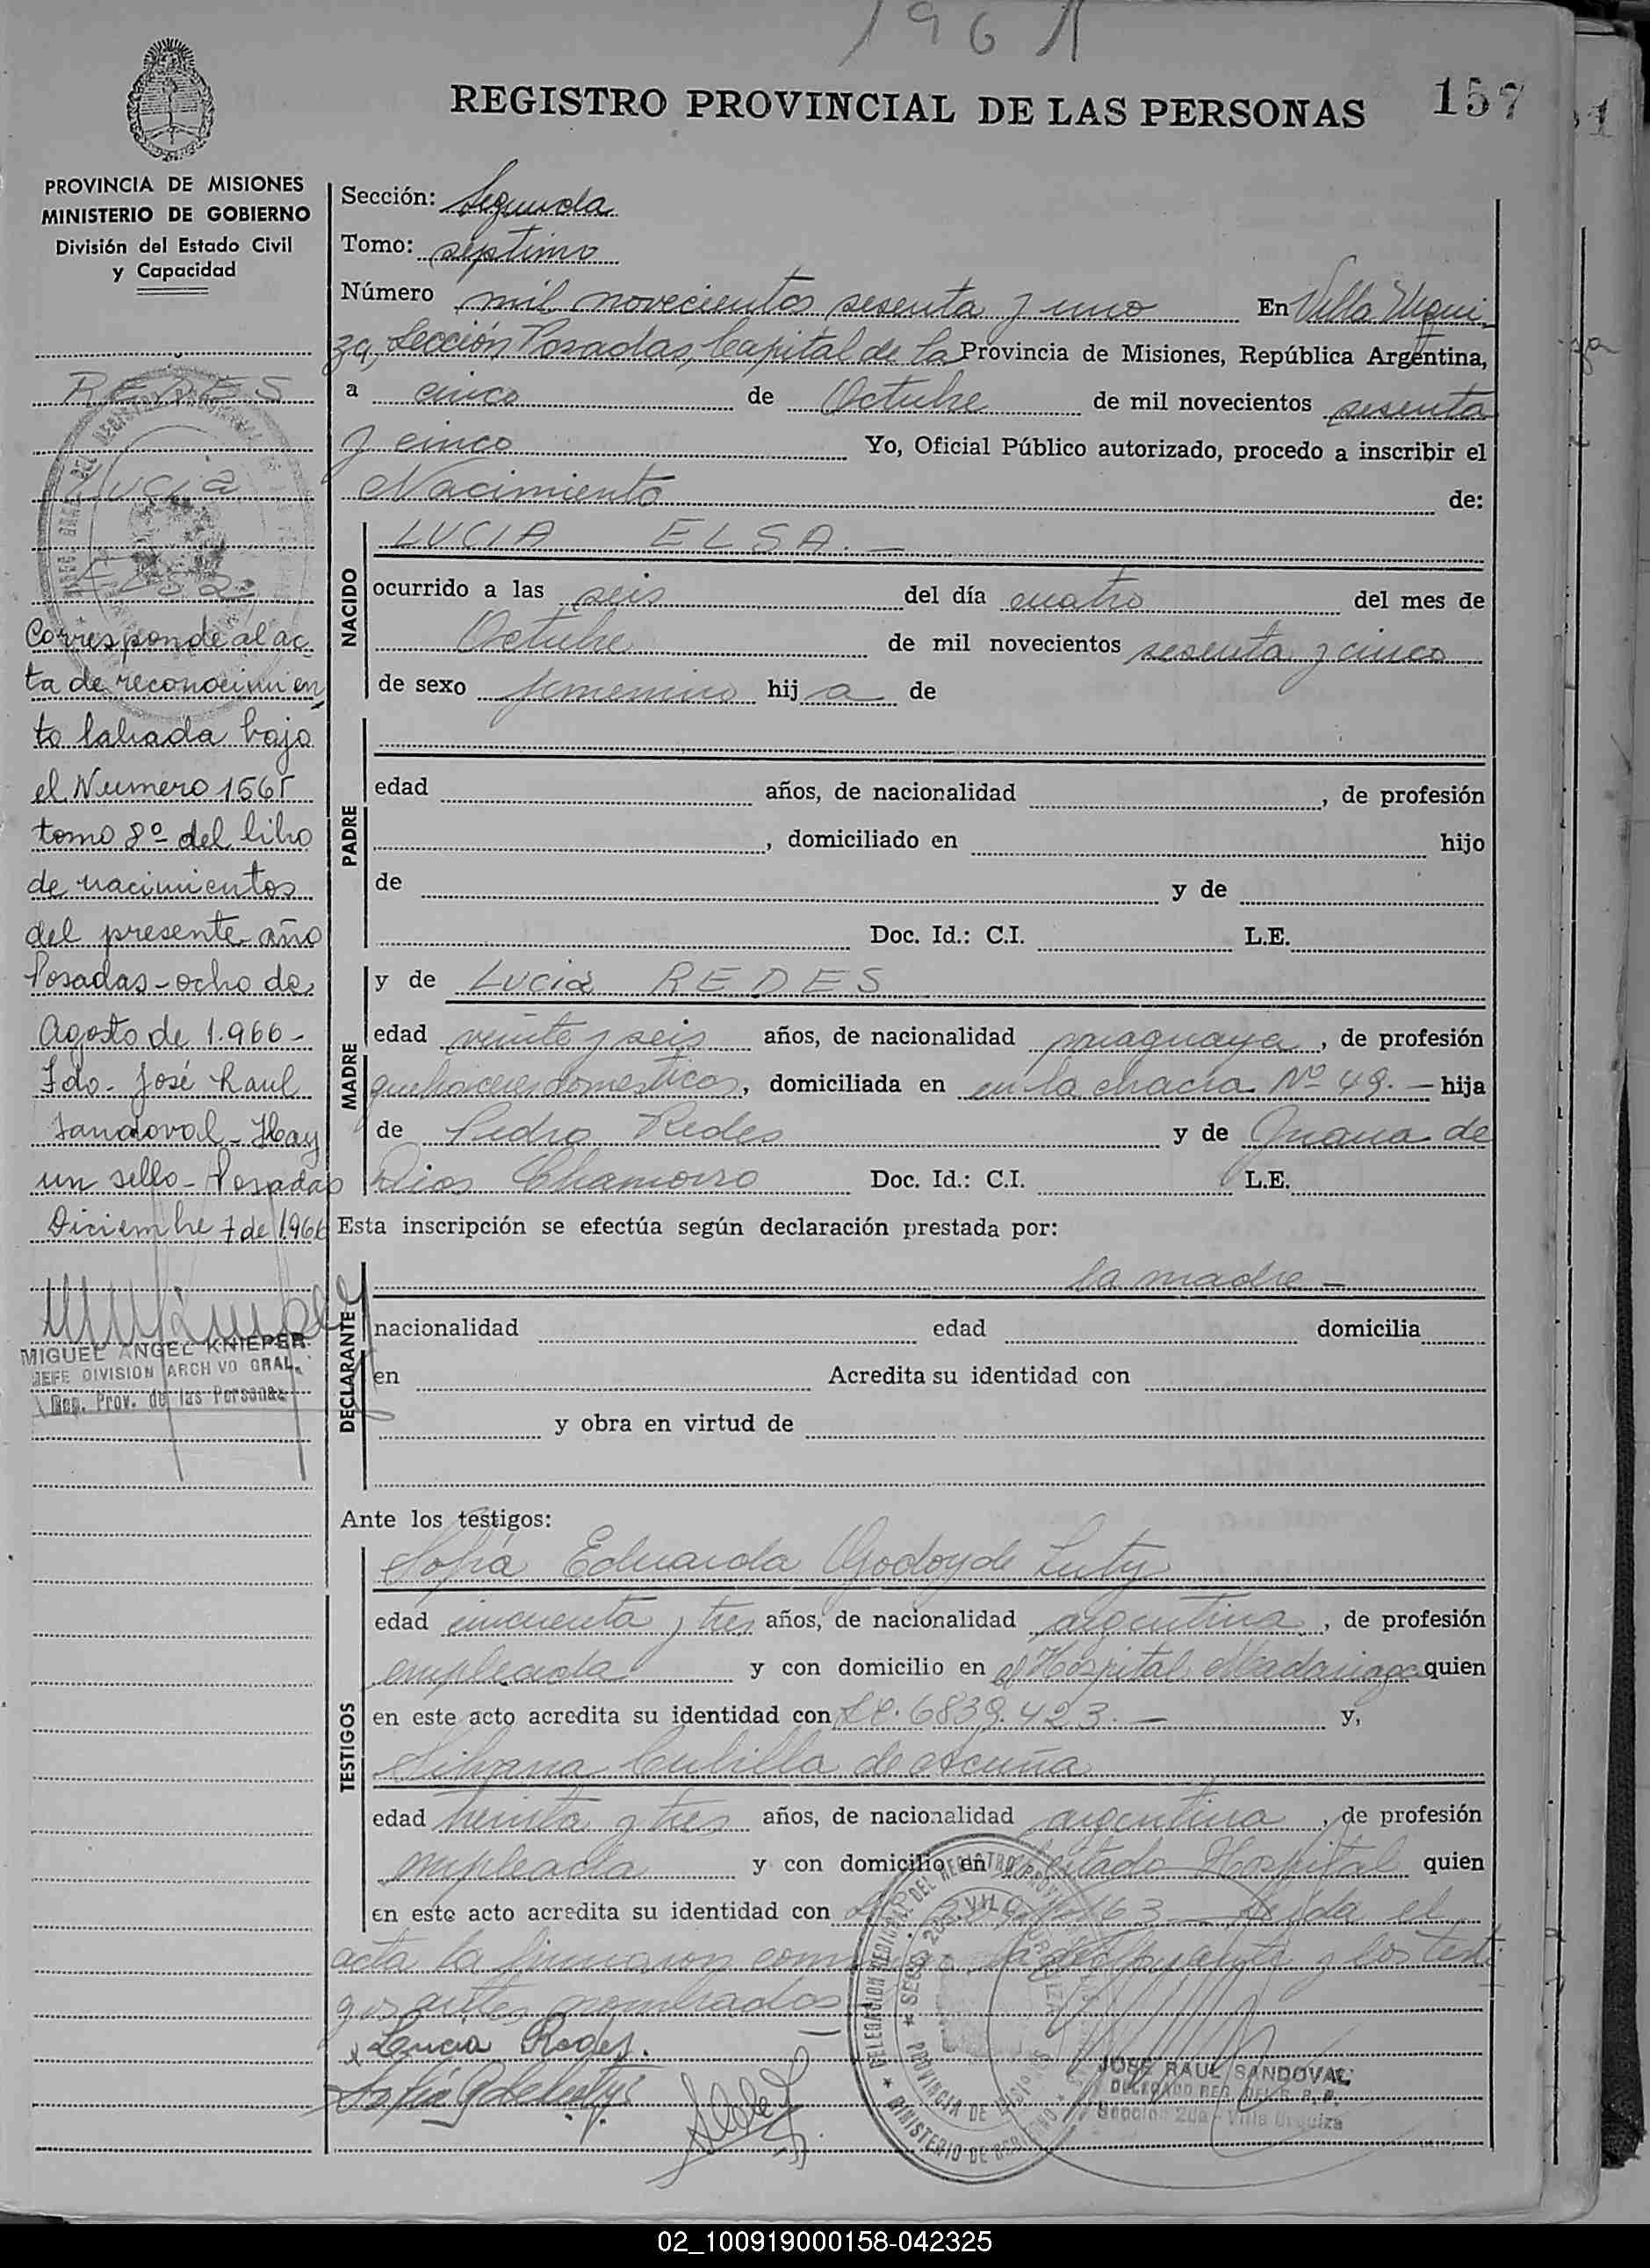 1961
REGISTRO PROVINCIAL DE LAS PERSONAS 157
PROVINCIA DE MISIONES
MINISTERIO DE GOBIERNO
División del Estado Civil
y Capacidad
REDES
Lucia
Elsa
Corresponde al ac
ta de reconocimien
to labrada bajo
el Numero 1565
tomo 8º del libro
de nacimientos
del presente año
Posadas - ocho de
Agosto de 1.966 -
Fdo. José Raul
Sandoval - Hay
un sello - Posadas
Diciembre 7 de 1.966
MIGUEL ANGEL KNIEPER
JEFE DIVISION ARCHIVO GRAL.
Reg. Prov. de las Personas
Sección: Segunda
Tomo: septimo
Número mil novecientos sesenta y uno En Villa Urqui
za, Sección Posadas, Capital de la Provincia de Misiones, República Argentina,
a cinco de Octubre de mil novecientos sesenta
y cinco Yo, Oficial Público autorizado, procedo a inscribir el
Nacimiento de:
NACIDO
LUCIA ELSA. -
ocurrido a las seis del día cuatro del mes de
Octubre de mil novecientos sesenta y cinco
de sexo femenino hij a de
PADRE
edad años, de nacionalidad , de profesión
, domiciliado en hijo
de y de
Doc. Id.: C.I. L.E.
MADRE
y de Lucia REDES
edad veinte y seis años, de nacionalidad paraguaya, de profesión
quehaceres domesticos, domiciliada en en la chacra Nº 49. - hija
de Pedro Redes y de Juana de
Dios Chamorro Doc. Id.: C.I. L.E.
Esta inscripción se efectúa según declaración prestada por:
DECLARANTE
la madre -
nacionalidad edad domicilia
en Acredita su identidad con
y obra en virtud de
Ante los testigos:
TESTIGOS
Sofia Eduarda Godoy de Luty
edad cincuenta y tres años, de nacionalidad argentina, de profesión
empleada y con domicilio en el Hospital Madariaga quien
en este acto acredita su identidad con LC. 6839.423. - y,
Silvana Cubilla de Acuña
edad treinta y tres años, de nacionalidad argentina, de profesión
empleada y con domicilio en citado Hospital quien
en este acto acredita su identidad con Leida el
acta la firmaron y los testi
gos nombrados
Lucia Redes.
JOSE RAUL SANDOVAL
Sección 2da - Villa Urquiza
02_100919000158-042325